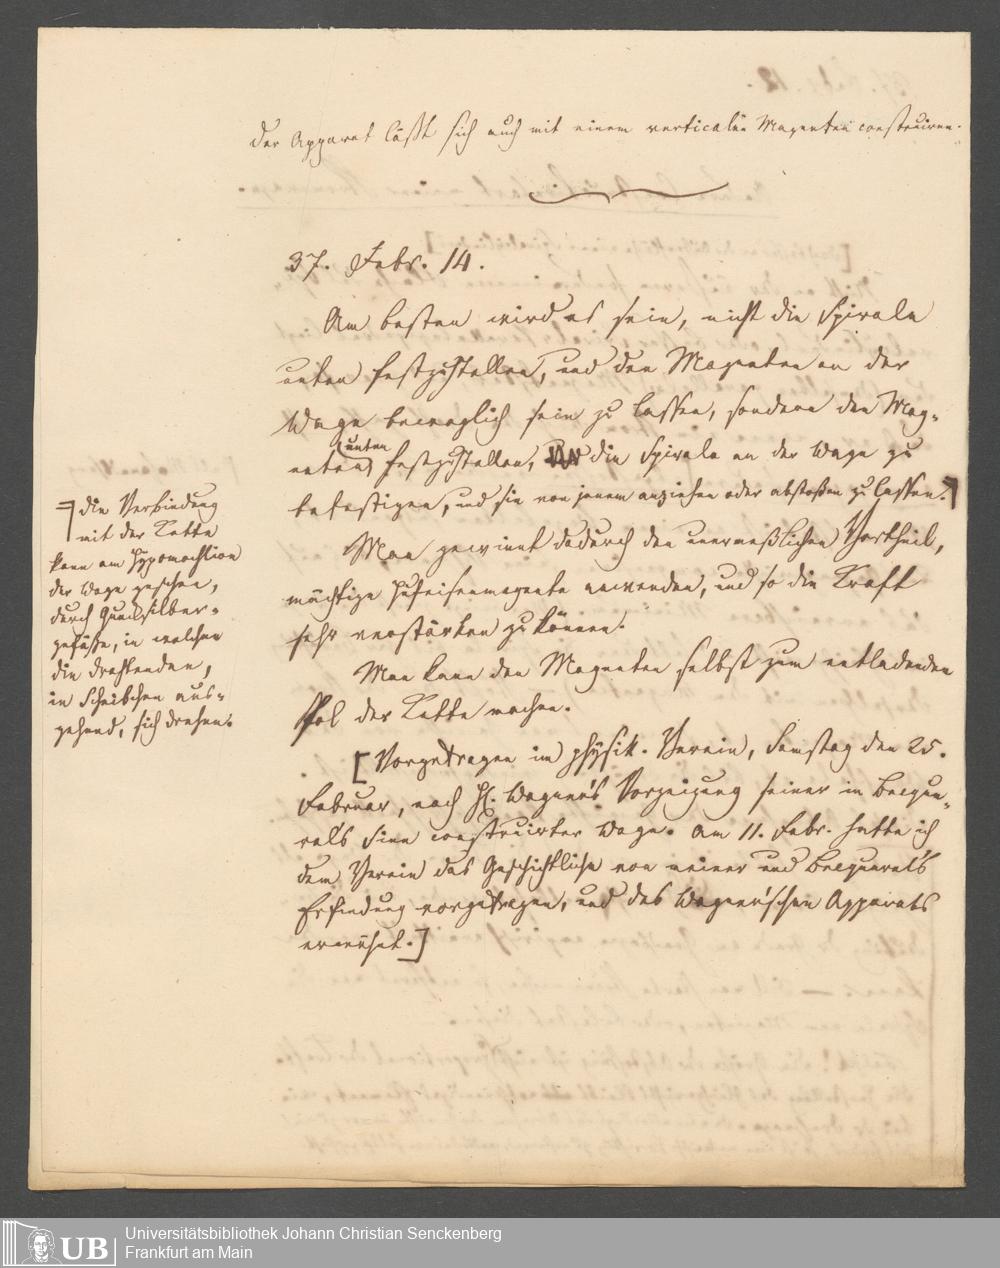 Der Apparat läßt sich auch mit einem verticalen Magneten construiren.
37. Febr. 14.
Am besten wird es sein, nicht die Spirale
unten festzustellen, und den Magneten an der
Wage beweglich sein zu lassen, sondern den Mag-
neten unten festzustellen, die Spirale an der Wage zu
befestigen, und sie von jenem anziehen oder abstoßen zu lassen.
die Verbindung
mit der Kette
kann am Hypomochlion
der Wage geschehen,
durch Quecksilber-
gefäße, in welchen
die Drahtenden,
in Scheibchen aus-
gehend, sich drehen.
Man gewinnt dadurch den unermeßlichen Vortheil,
mächtige Hufeisenmagnete anwenden, und so die Kraft
sehr verstärken zu können.
Man kann den Magneten selbst zum entladenden
Pol der Kette machen.
[Vorgetragen im physik. Verein, Samstag den 25.
Februar, nach H. Wagner's Vorzeigung seiner in Becque-
rel's Sinn construirter Wage. Am 11. Febr. hatte ich
dem Verein das Geschichtliche von meiner und Becquerel's
Erfindung vorgetragen, und des Wagner'schen Apparats
erwähnt.]
Universitätsbibliothek Johann Christian Senckenberg
Frankfurt am Main
UB